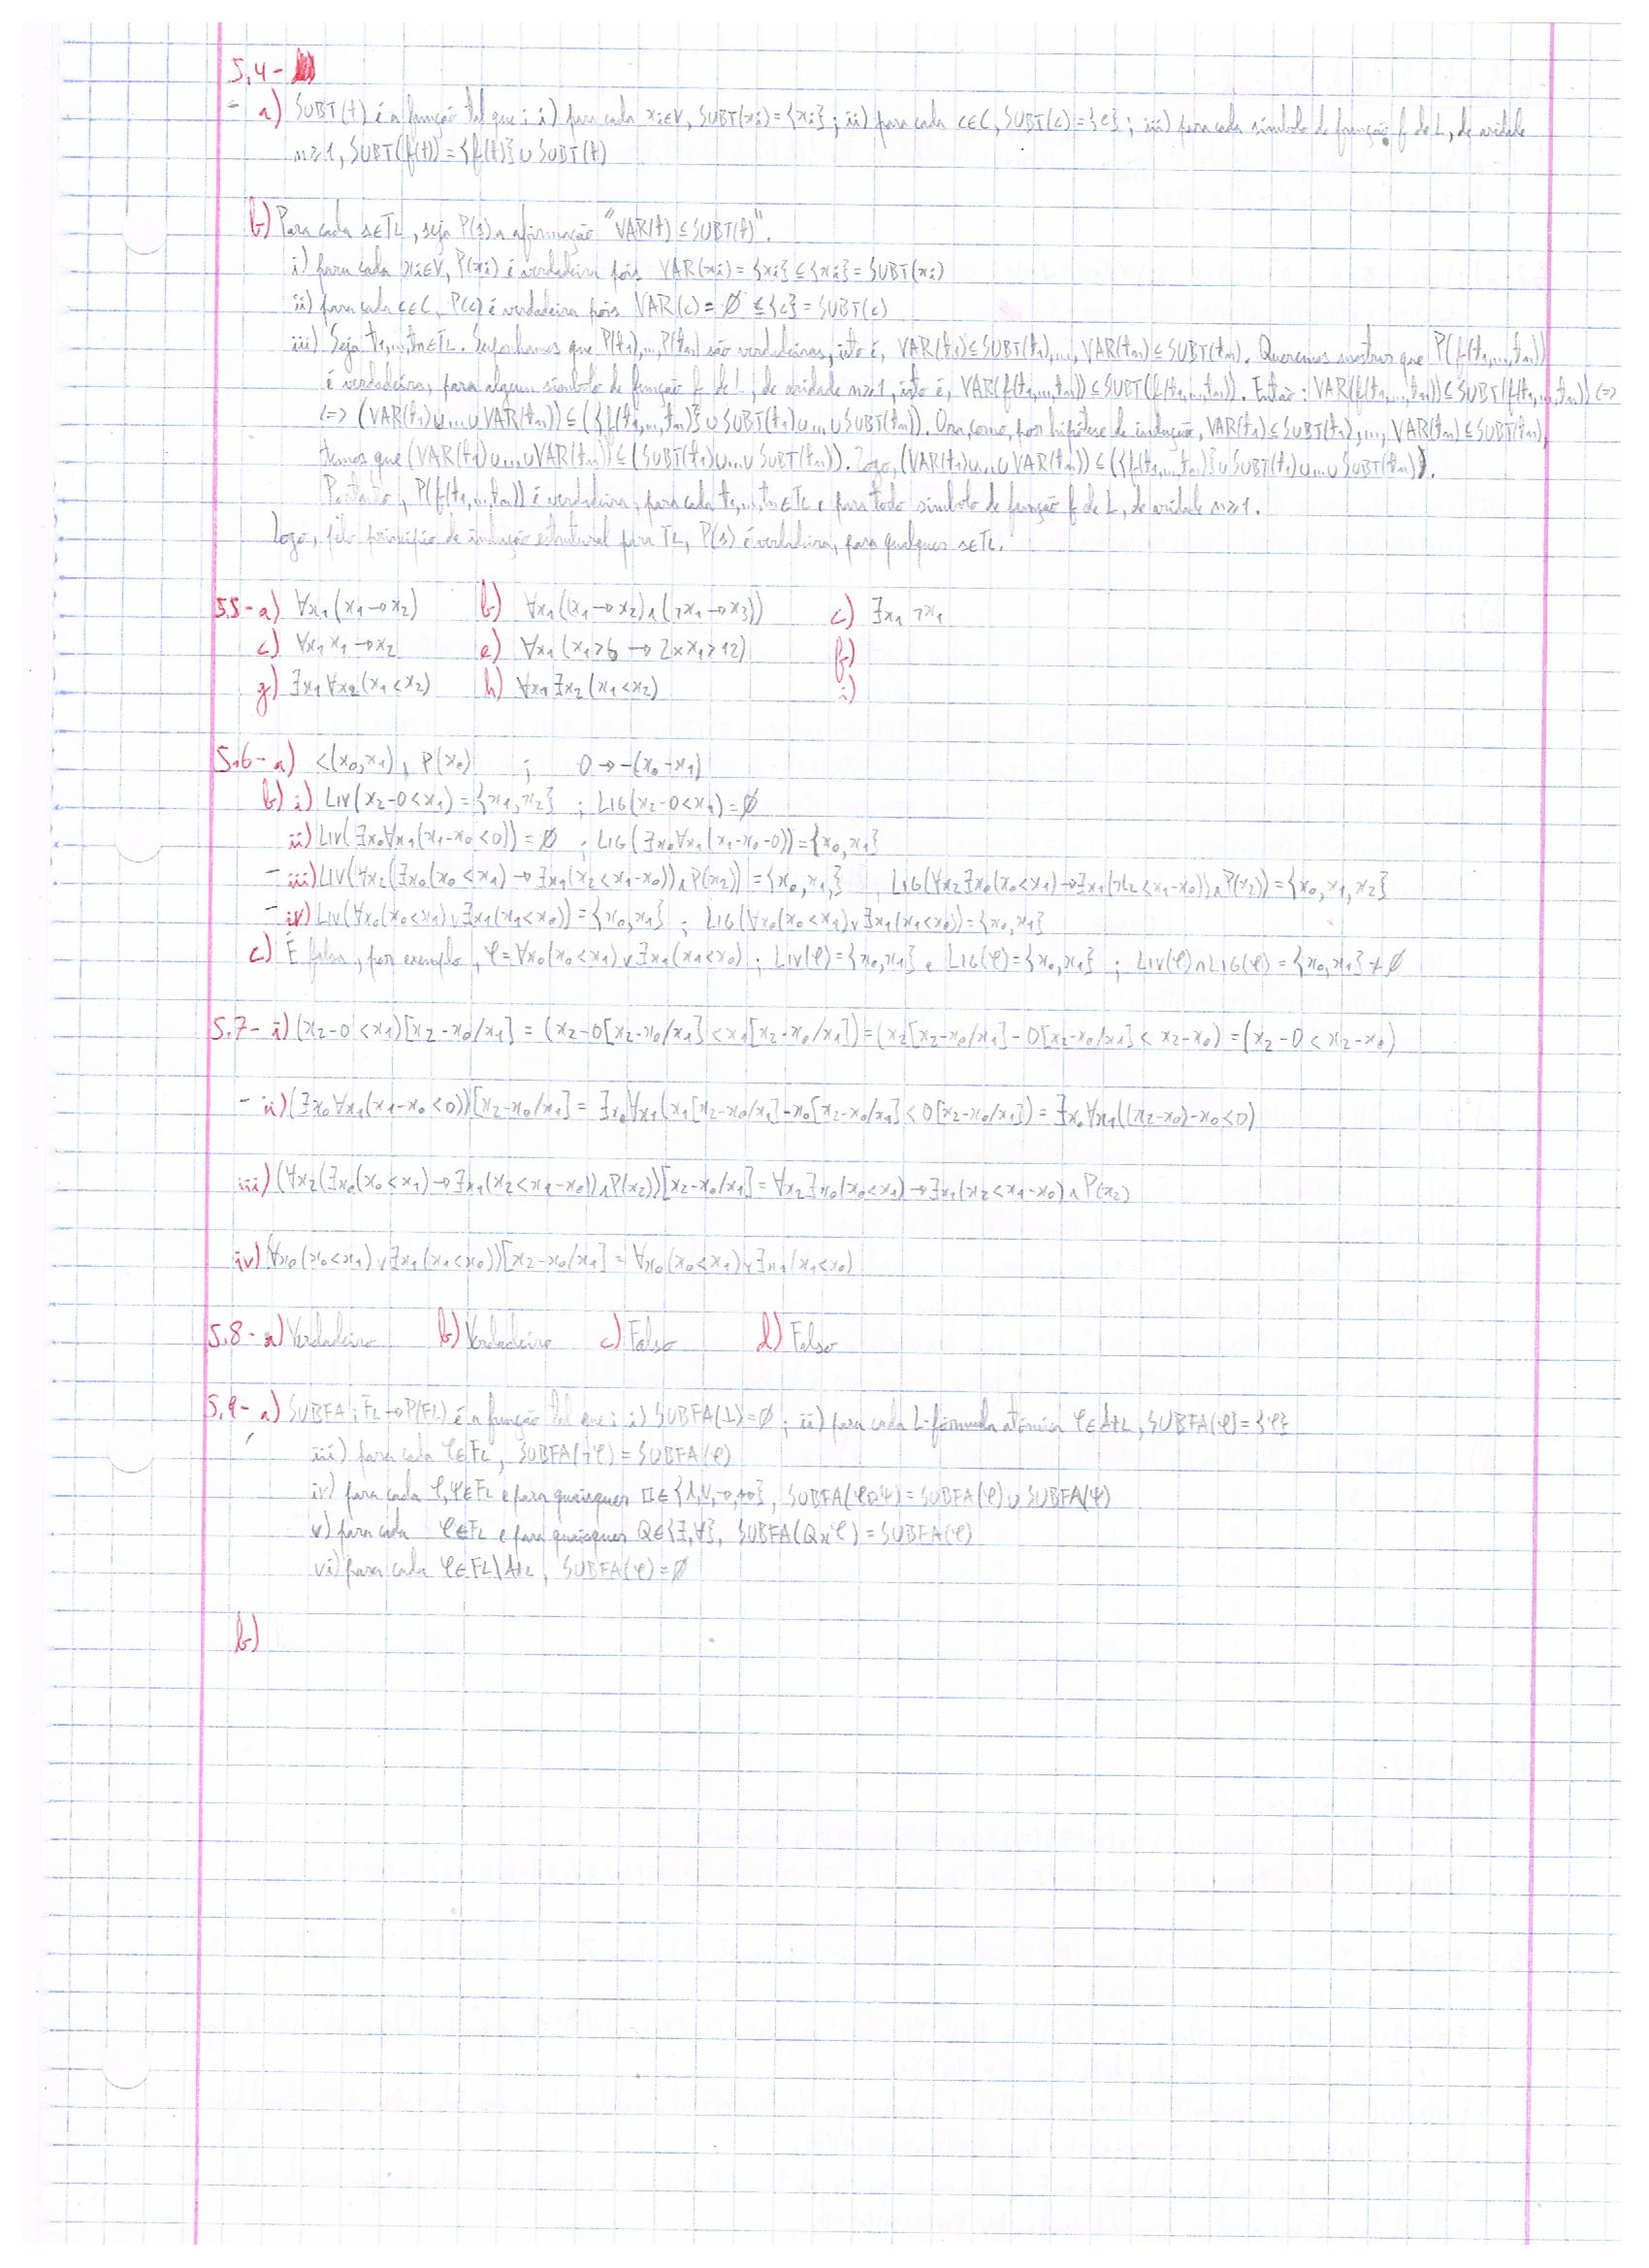 5.4-
- a) SUBT(t) é a função tal que: i) para cada xi∈V, SUBT(xi)={xi}; ii) para cada c∈C, SUBT(c)={c}; iii) para cada símbolo de função f de L, de aridade
n≥1, SUBT(f(t))={f(t)}∪SUBT(t)
b) Para cada s∈TL, seja P(s) a afirmação "VAR(t)⊆SUBT(t)".
i) para cada xi∈V, P(xi) é verdadeira pois VAR(xi)={xi}⊆{xi}=SUBT(xi)
ii) para cada c∈C, P(c) é verdadeira pois VAR(c)=∅⊆{c}=SUBT(c)
iii) Seja t1,...,tn∈TL. Suponhamos que P(t1),...,P(tn) são verdadeiras, isto é, VAR(t1)⊆SUBT(t1),...,VAR(tn)⊆SUBT(tn). Queremos mostrar que P(f(t1,...,tn))
é verdadeira, para algum símbolo de função f de L, de aridade n≥1, isto é, VAR(f(t1,...,tn))⊆SUBT(f(t1,...,tn)). Então: VAR(f(t1,...,tn))⊆SUBT(f(t1,...,tn)) <=>
<=> (VAR(t1)∪...∪VAR(tn))⊆({f(t1,...,tn)}∪SUBT(t1)∪...∪SUBT(tn)). Ora, como, por hipótese de indução, VAR(t1)⊆SUBT(t1),...,VAR(tn)⊆SUBT(tn),
temos que (VAR(t1)∪...∪VAR(tn))⊆(SUBT(t1)∪...∪SUBT(tn)). Logo, (VAR(t1)∪...∪VAR(tn))⊆({f(t1,...,tn)}∪SUBT(t1)∪...∪SUBT(tn)).
Portanto, P(f(t1,...,tn)) é verdadeira, para cada t1,...,tn∈TL e para todo símbolo de função f de L, de aridade n≥1.
Logo, pelo princípio de indução estrutural para TL, P(s) é verdadeira, para qualquer s∈TL.
5.5-a) ∀x1(x1→x2) b) ∀x1((x1→x2)∧(¬x1→x3)) c) ∃x1 ¬x1
c) ∀x1 x1→x2 e) ∀x1(x1>6→2×x1>12) f)
g) ∃x1∀x2(x1<x2) h) ∀x1∃x2(x1<x2) i)
5.6-a) <(x0,x1), P(x0) ; 0→-(x0-x1)
b) i) LIV(x2-0<x1)={x1,x2} ; LIG(x2-0<x1)=∅
ii) LIV(∃x0∀x1(x1-x0<0))=∅ ; LIG(∃x0∀x1(x1-x0-0))={x0,x1}
- iii) LIV(∀x2(∃x0(x0<x1)→∃x1(x2<x1-x0))∧P(x2))={x0,x1,} LIG(∀x2∃x0(x0<x1)→∃x1(x2<x1-x0))∧P(x2))={x0,x1,x2}
- iv) LIV(∀x0(x0<x1)∨∃x1(x1<x0))={x0,x1} ; LIG(∀x0(x0<x1)∨∃x1(x1<x0))={x0,x1}
c) É falsa, por exemplo, φ=∀x0(x0<x1)∨∃x1(x1<x0); LIV(φ)={x0,x1} e LIG(φ)={x0,x1} ; LIV(φ)∩LIG(φ)={x0,x1}≠∅
5.7- i) (x2-0<x1)[x2-x0/x1] = (x2-0[x2-x0/x1]<x1[x2-x0/x1])=(x2[x2-x0/x1]-0[x2-x0/x1]<x2-x0)=(x2-0<x2-x0)
- ii) (∃x0∀x1(x1-x0<0))[x2-x0/x1] = ∃x0∀x1(x1[x2-x0/x1]-x0[x2-x0/x1]<0[x2-x0/x1]) = ∃x0∀x1((x2-x0)-x0<0)
iii) (∀x2(∃x0(x0<x1)→∃x1(x2<x1-x0))∧P(x2))[x2-x0/x1] = ∀x2∃x0(x0<x1)→∃x1(x2<x1-x0)∧P(x2)
iv) (∀x0(x0<x1)∨∃x1(x1<x0))[x2-x0/x1] = ∀x0(x0<x1)∨∃x1(x1<x0)
5.8- a) Verdadeiro b) Verdadeiro c) Falso d) Falso
5.9- a) SUBFA: FL→P(FL) é a função tal que: i) SUBFA(⊥)=∅; ii) para cada L-fórmula atómica φ∈AtL, SUBFA(φ)={φ}
iii) para cada φ∈FL, SUBFA(¬φ)=SUBFA(φ)
iv) para cada φ,ψ∈FL e para quaisquer □∈{∧,∨,→,↔}, SUBFA(φ□ψ)=SUBFA(φ)∪SUBFA(ψ)
v) para cada φ∈FL e para quaisquer Q∈{∃,∀}, SUBFA(Qxφ)=SUBFA(φ)
vi) para cada φ∈FL\AtL, SUBFA(φ)=∅
b)